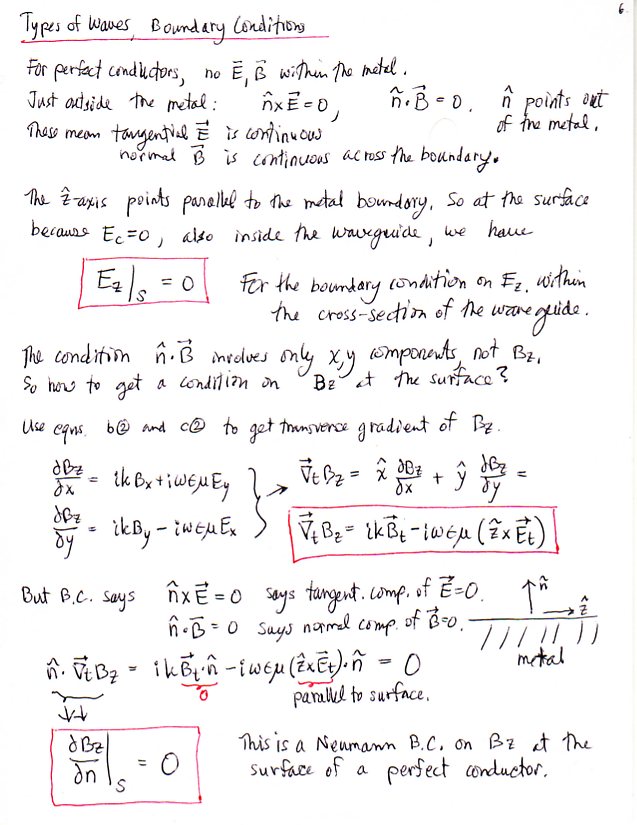 6
Types of Waves, Boundary Conditions
For perfect conductors, no E⃗, B⃗ within the metal.
Just outside the metal: n̂×E⃗ = 0, n̂·B⃗ = 0. n̂ points out
of the metal.
These mean tangential E⃗ is continuous
normal B⃗ is continuous across the boundary.
The ẑ-axis points parallel to the metal boundary. So at the surface
because E_c=0, also inside the waveguide, we have
E_z|_S = 0 For the boundary condition on E_z, within
the cross-section of the waveguide.
The condition n̂·B⃗ involves only x,y components, not B_z.
So how to get a condition on B_z at the surface?
Use eqns. b② and c② to get transverse gradient of B_z.
∂B_z/∂x = ikB_x + iωϵμE_y → ∇⃗_t B_z = x̂ ∂B_z/∂x + ŷ ∂B_z/∂y =
∂B_z/∂y = ikB_y − iωϵμE_x ∇⃗_t B_z = ikB⃗_t − iωϵμ(ẑ×E⃗_t)
But B.C. says n̂×E⃗ = 0 says tangent. comp. of E⃗=0.
n̂·B⃗ = 0 says normal comp. of B⃗=0.
n̂ ẑ
metal
n̂·∇⃗_t B_z = ikB⃗_t·n̂ − iωϵμ(ẑ×E⃗_t)·n̂ = 0
0 parallel to surface.
∂B_z/∂n|_S = 0 This is a Neumann B.C. on B_z at the
surface of a perfect conductor.